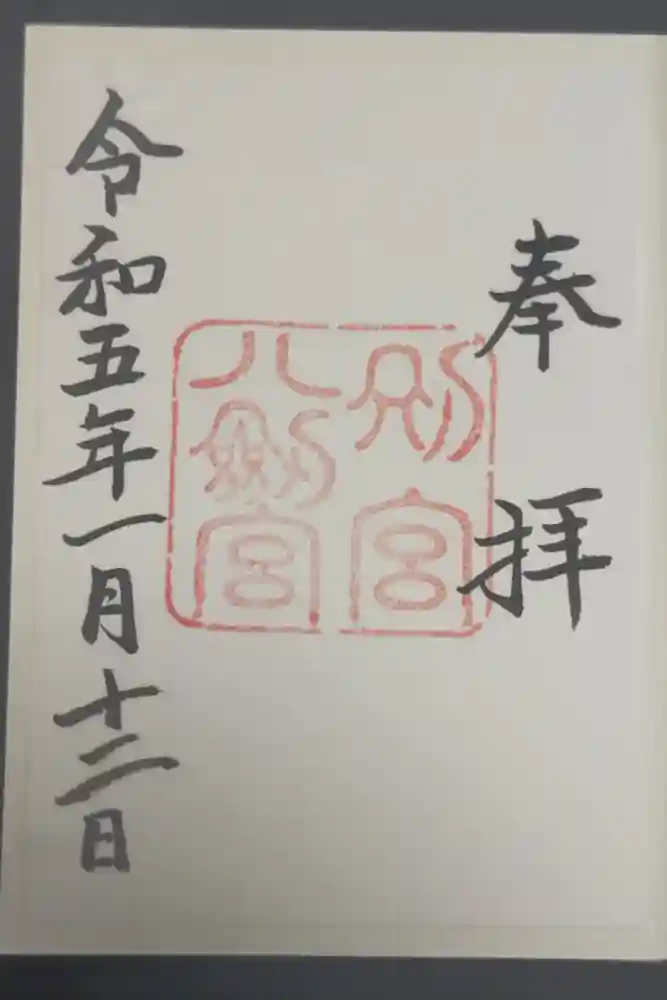 奉拝
別宮
八剱宮
令和五年一月十二日